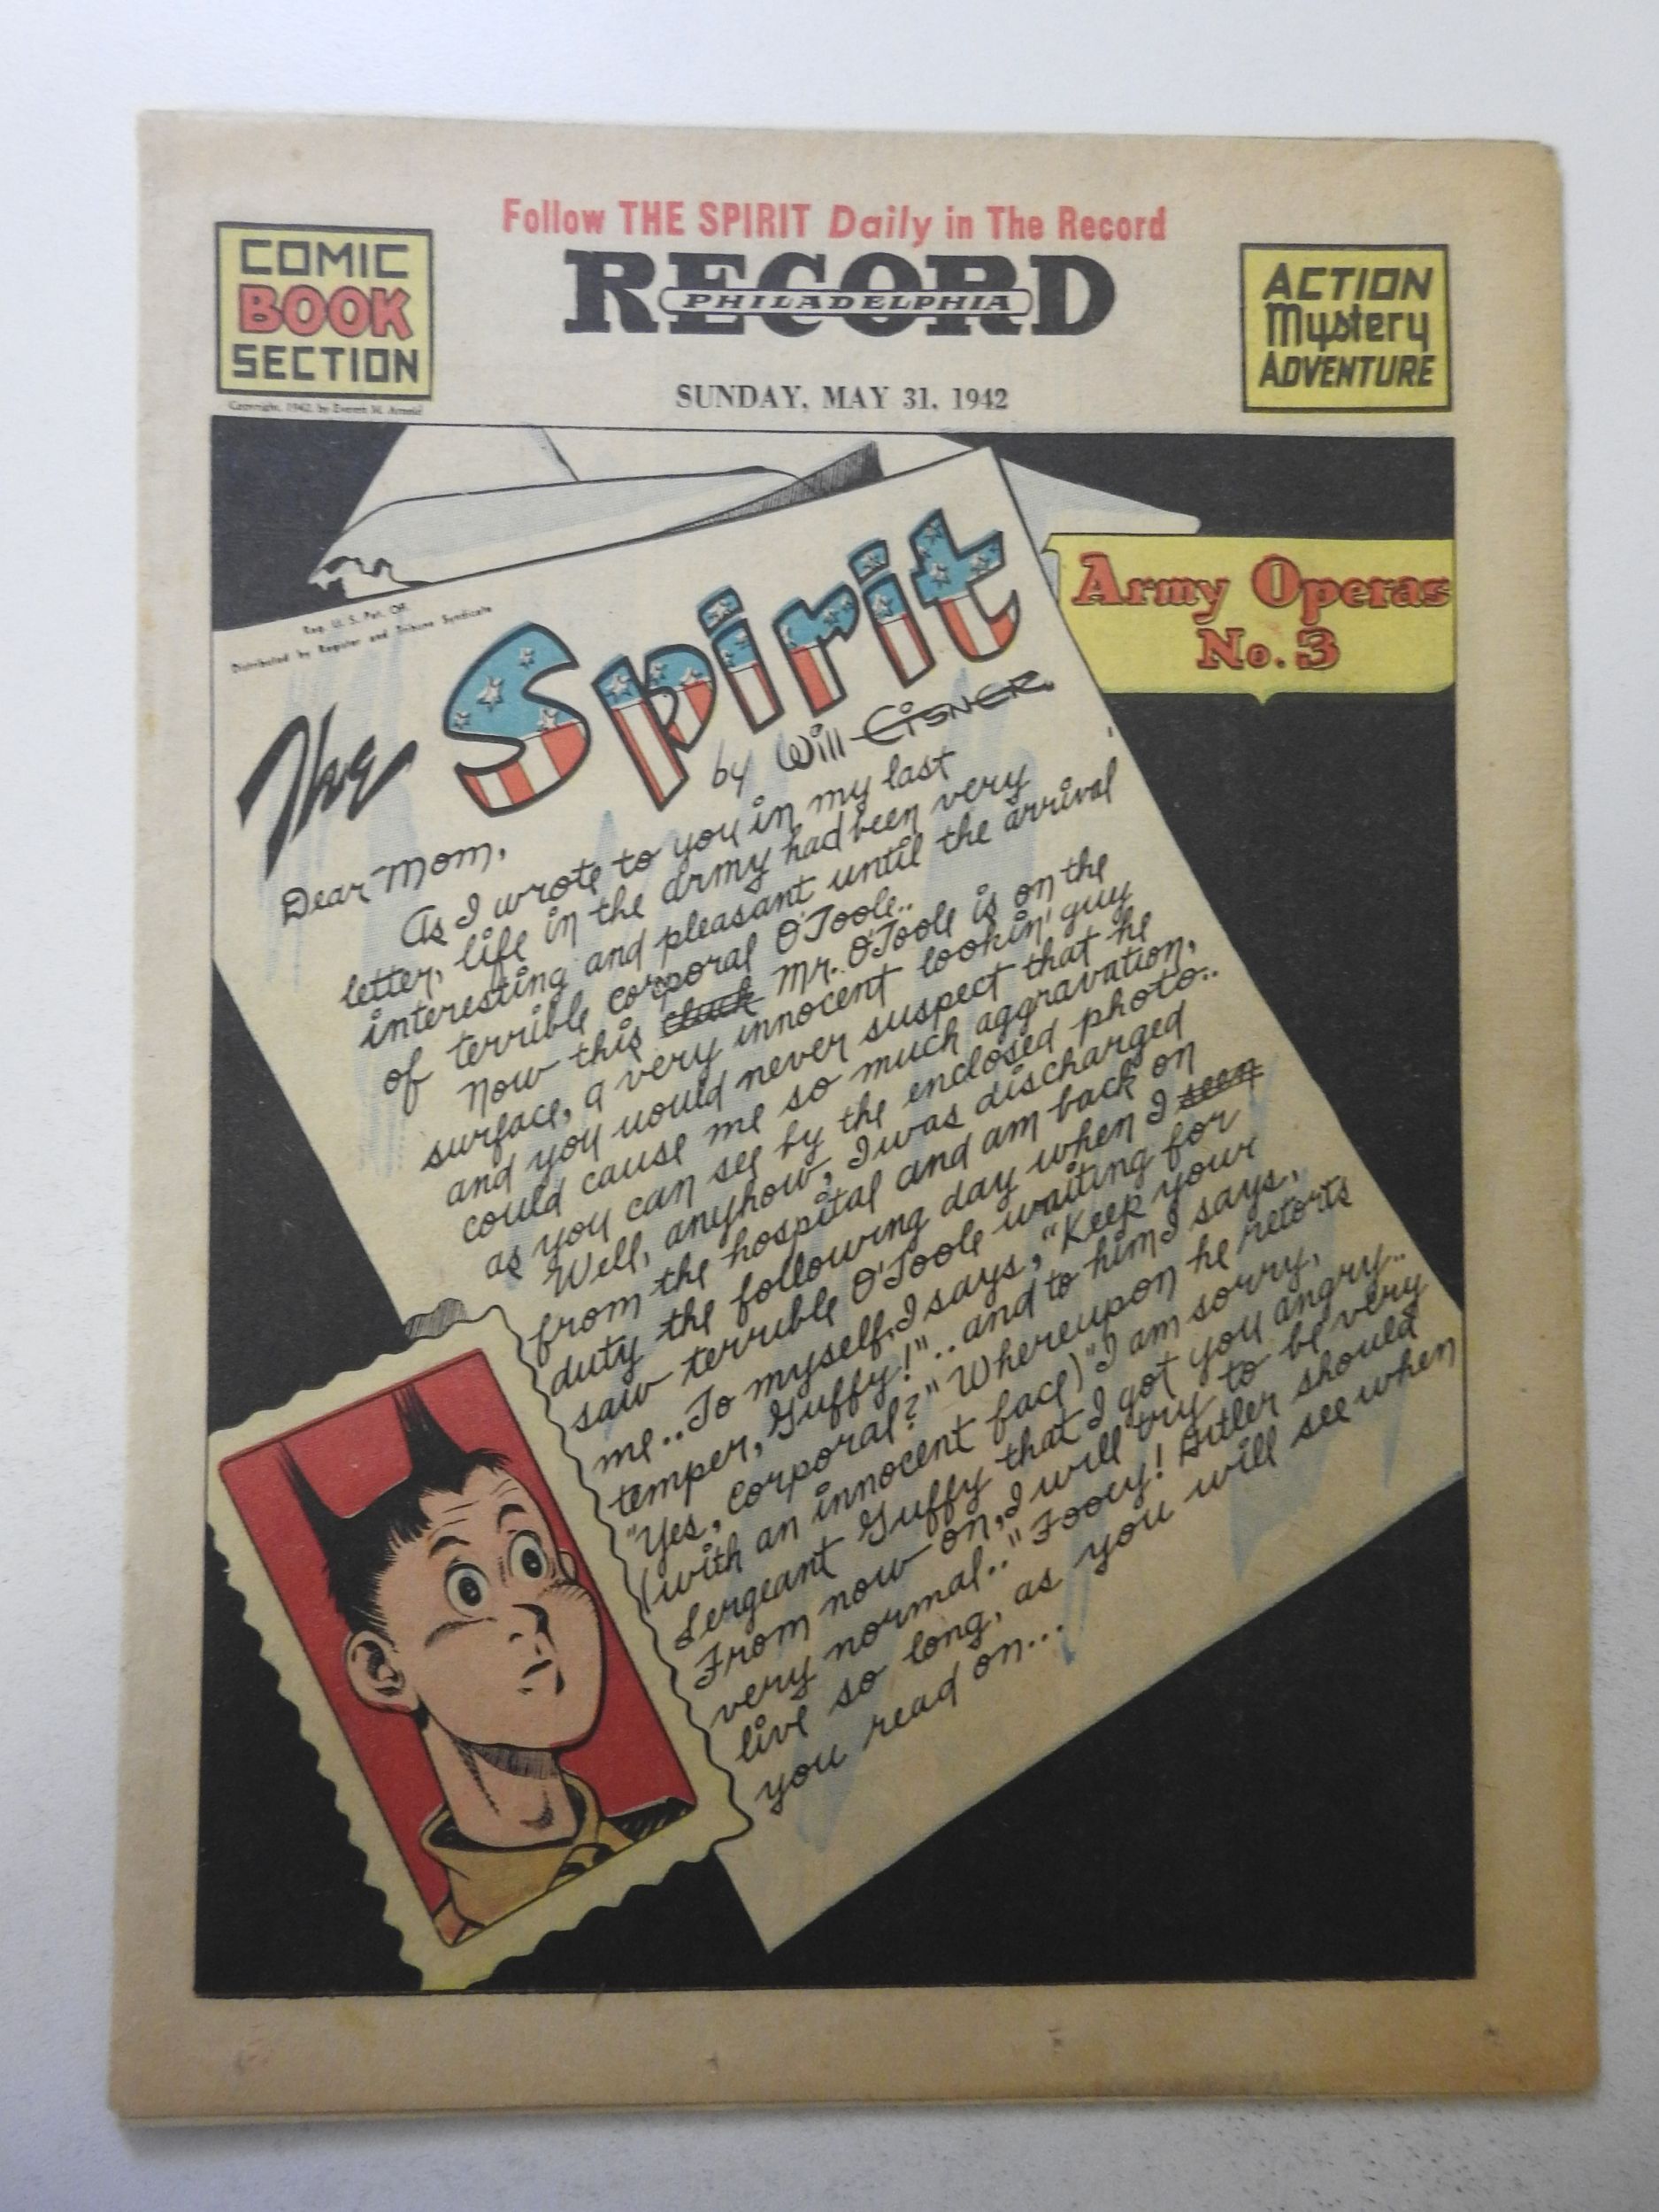 Follow THE SPIRIT Daily in The Record
COMIC
BOOK
SECTION
Copyright, 1942, by Everett M. Arnold
RECORD
PHILADELPHIA
SUNDAY, MAY 31, 1942
ACTION
Mystery
ADVENTURE
Reg. U. S. Pat. Off.
Distributed by Register and Tribune Syndicate
The Spirit
by Will Eisner
Army Operas
No. 3
Dear Mom,
As I wrote to you in my last
letter, life in the army had been very
interesting and pleasant until the arrival
of terrible corporal O'Toole..
Now this cluck Mr. O'Toole is on the
surface, a very innocent lookin' guy
and you would never suspect that he
could cause me so much aggravation,
as you can see by the enclosed photo..
Well, anyhow, I was discharged
from the hospital and am back on
duty the following day when I seen
saw terrible O'Toole waiting for
me.. To myself, I says, "Keep your
temper, Guffy!".. and to him I says,
"Yes, corporal?" Whereupon he retorts
(with an innocent face) "I am sorry,
Sergeant Guffy that I got you angry..
From now on, I will try to be very
very normal.." Fooey! Hitler should
live so long, as you will see when
you read on...